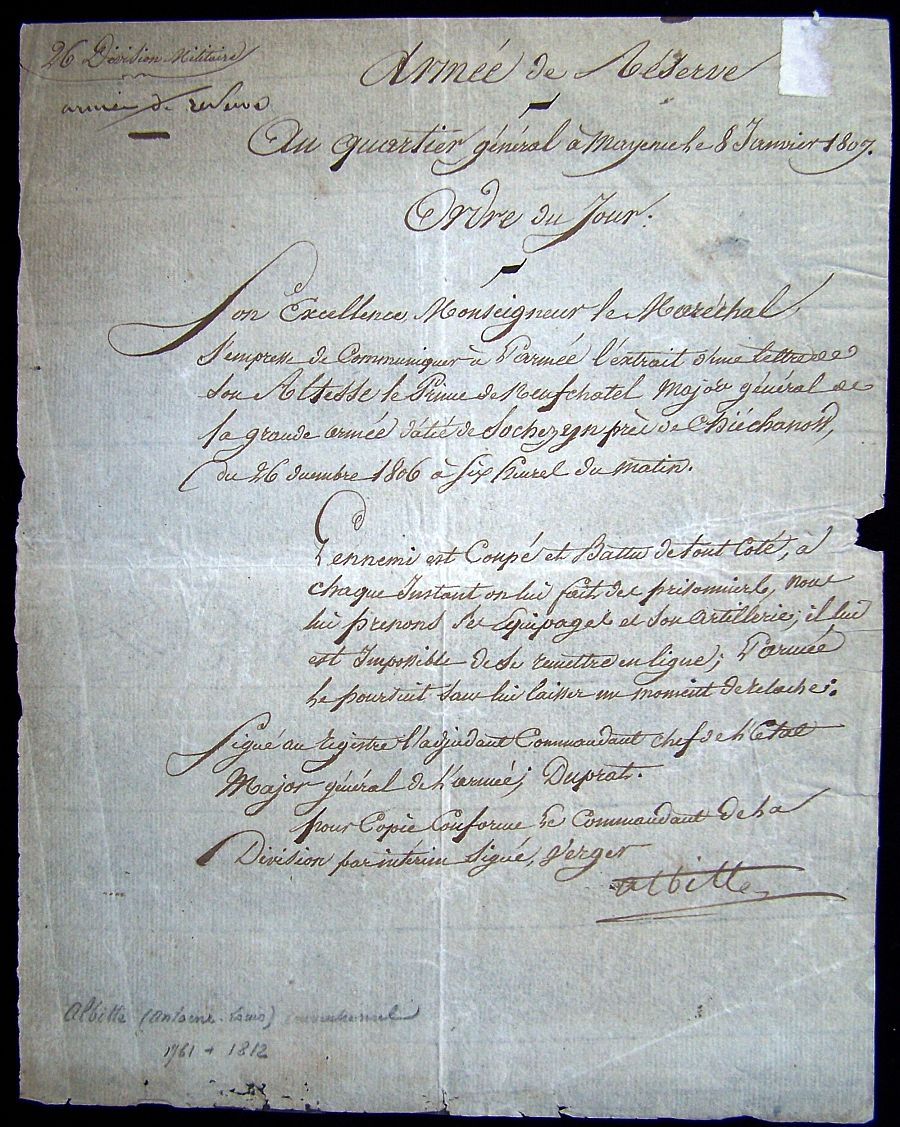 26 Division Militaire
armée de reserve
Armée de Réserve
Au quartier général à Mayence le 8 Janvier 1807.
Ordre du Jour.
Son Excellence Monseigneur le Maréchal
S'empresse de Communiquer à l'armée l'extrait d'une lettre de
Son Altesse le Prince de Neufchatel Major général de
la grande armée datté de Sochezyn près de Chiéchanow,
du 26 decembre 1806 à Six heures du matin.
L'ennemi est Coupé et Battu de tout Coté, à
chaque Instant on lui fait des prisonniers, nous
lui prenons Ses Equipages et Son Artillerie; il lui
est Impossible de Se remettre en ligne; l'armée
le poursuit Sans lui laisser un moment de relache:.
Signé au registre l'adjudant Commandant chef de l'Etat
Major général de l'armée; Duprat.
pour Copie Conforme le Commandant de la
Division par interim Signé, Verger
Albitte
Albitte (Antoine-Louis) conventionnel
1761 + 1812